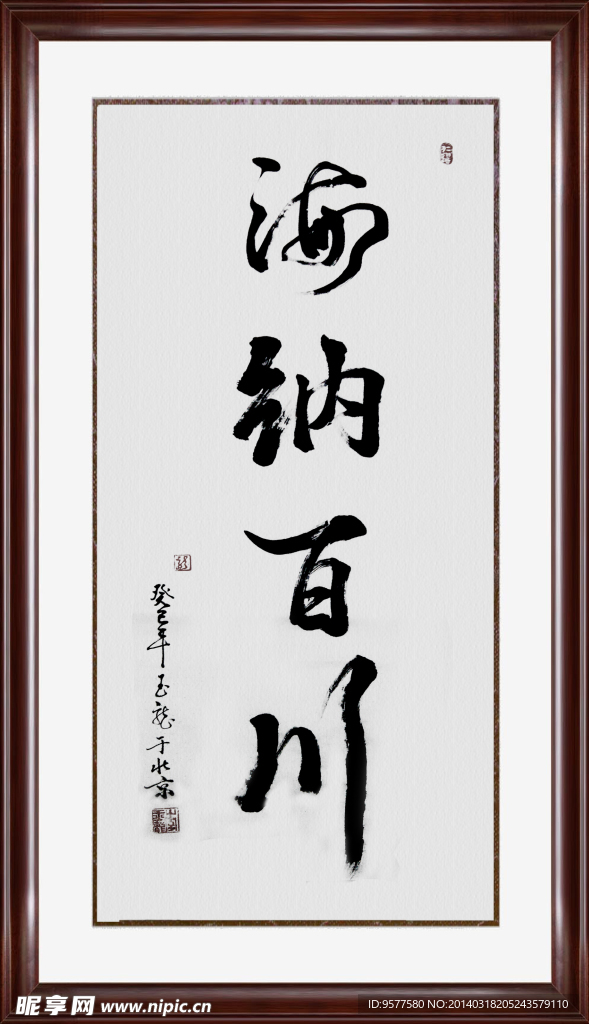 海纳百川
癸巳年玉龙于北京
昵享网 www.nipic.cn
ID:9577580 NO:20140318205243579110